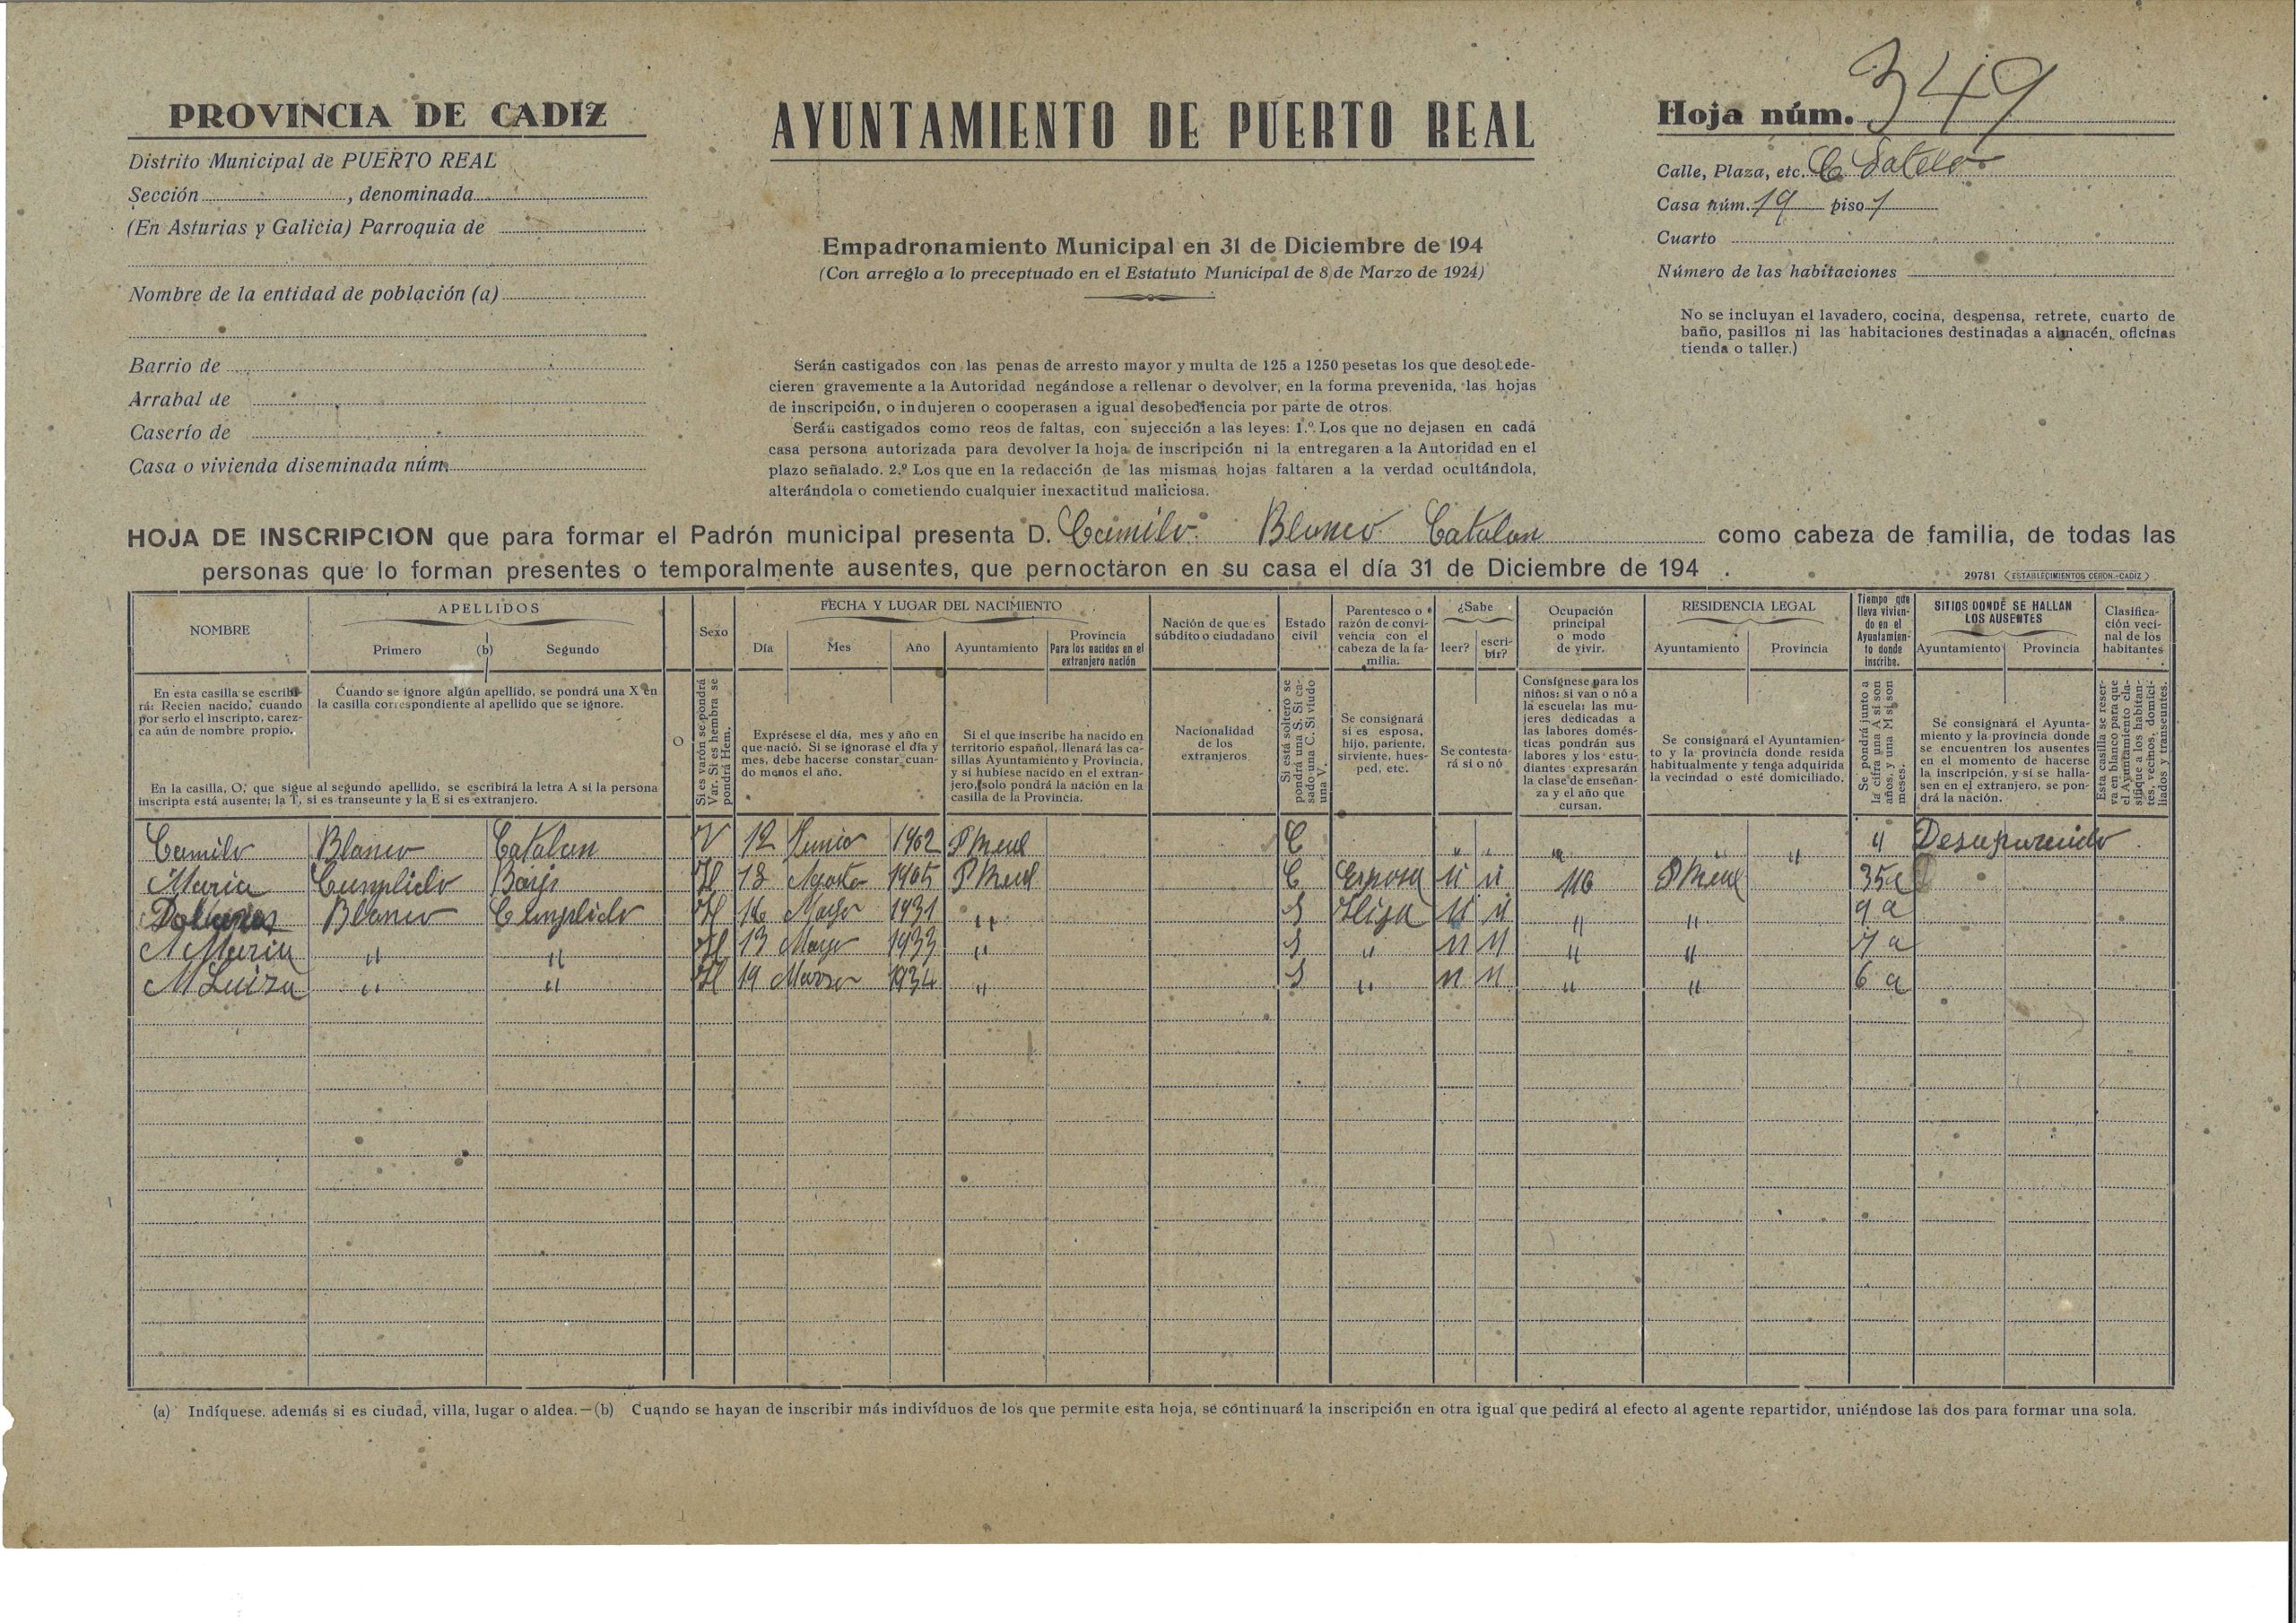 PROVINCIA DE CADIZ
Distrito Municipal de PUERTO REAL
Sección , denominada
(En Asturias y Galicia) Parroquia de
Nombre de la entidad de población (a)
Barrio de
Arrabal de
Caserío de
Casa o vivienda diseminada núm.
AYUNTAMIENTO DE PUERTO REAL
Empadronamiento Municipal en 31 de Diciembre de 194
(Con arreglo a lo preceptuado en el Estatuto Municipal de 8 de Marzo de 1924)
Serán castigados con las penas de arresto mayor y multa de 125 a 1250 pesetas los que desobede-
cieren gravemente a la Autoridad negándose a rellenar o devolver, en la forma prevenida, las hojas
de inscripción, o indujeren o cooperasen a igual desobediencia por parte de otros.
Serán castigados como reos de faltas, con sujección a las leyes: 1.º Los que no dejasen en cada
casa persona autorizada para devolver la hoja de inscripción ni la entregaren a la Autoridad en el
plazo señalado. 2.º Los que en la redacción de las mismas hojas faltaren a la verdad ocultándola,
alterándola o cometiendo cualquier inexactitud maliciosa.
Hoja núm. 349
Calle, Plaza, etc. C
Casa núm. 19 piso 1
Cuarto
Número de las habitaciones
No se incluyan el lavadero, cocina, despensa, retrete, cuarto de
baño, pasillos ni las habitaciones destinadas a almacén, oficinas
tienda o taller.)
HOJA DE INSCRIPCION que para formar el Padrón municipal presenta D. Camilo Blanco Catalan como cabeza de familia, de todas las
personas que lo forman presentes o temporalmente ausentes, que pernoctaron en su casa el día 31 de Diciembre de 194 .
29781 (ESTABLECIMIENTOS CERON.-CADIZ)
NOMBRE
APELLIDOS
Primero (b) Segundo
Sexo
FECHA Y LUGAR DEL NACIMIENTO
Día Mes Año Ayuntamiento
Provincia
Para los nacidos en el
extranjero nación
Nación de que es
súbdito o ciudadano
Estado
civil
Parentesco o
razón de convi-
vencia con el
cabeza de la fa-
milia.
¿Sabe
leer? escri-
bir?
Ocupación
principal
o modo
de vivir.
RESIDENCIA LEGAL
Ayuntamiento Provincia
Tiempo que
lleva vivien-
do en el
Ayuntamien-
to donde
inscribe.
SITIOS DONDE SE HALLAN
LOS AUSENTES
Ayuntamiento Provincia
Clasifica-
ción veci-
nal de los
habitantes
En esta casilla se escribi-
rá: Recien nacido, cuando
por serlo el inscripto, carez-
ca aún de nombre propio.
Cuando se ignore algún apellido, se pondrá una X en
la casilla correspondiente al apellido que se ignore.
En la casilla, O, que sigue al segundo apellido, se escribirá la letra A si la persona
inscripta está ausente; la T, si es transeunte y la E si es extranjero.
O
Si es varón se pondrá
Var. Si es hembra se
pondrá Hem.
Exprésese el día, mes y año en
que nació. Si se ignorase el día y
mes, debe hacerse constar cuan-
do menos el año.
Si el que inscribe ha nacido en
territorio español, llenará las ca-
sillas Ayuntamiento y Provincia,
y si hubiese nacido en el extran-
jero, solo pondrá la nación en la
casilla de la Provincia.
Nacionalidad
de los
extranjeros
Si está soltero se
pondrá una S. Si ca-
sado una C. Si viudo
una V.
Se consignará
si es esposa,
hijo, pariente,
sirviente, hues-
ped, etc.
Se contesta-
rá si o nó
Consígnese para los
niños: si van o nó a
la escuela: las mu-
jeres dedicadas a
las labores domés-
ticas pondrán sus
labores y los estu-
diantes expresarán
la clase de enseñan-
za y el año que
cursan.
Se consignará el Ayuntamien-
to y la provincia donde resida
habitualmente y tenga adquirida
la vecindad o esté domiciliado.
Se pondrá junto a
la cifra una A si son
años, y una M si son
meses.
Se consignará el Ayunta-
miento y la provincia donde
se encuentren los ausentes
en el momento de hacerse
la inscripción, y si se halla-
sen en el extranjero, se pon-
drá la nación.
Esta casilla se reser-
va en blanco para que
el Ayuntamiento cla-
sifique a los habitan-
tes, vecinos, domici-
liados y transeuntes.
Camilo Blanco Catalan V 12 Junio 1902 P Real C " " " " " " Desaparecido
Maria Cumplido H 18 Agosto 1905 P Real C Esposa P Real 35a
Dolores Blanco Cumplido H 16 Mayo 1931 " S Hija " " 9 a
Maria " " H 13 Mayo 1933 " S " " " 7 a
M Luiza " " H 19 Marzo 1934 " S " " " 6 a
(a) Indíquese. además si es ciudad, villa, lugar o aldea.—(b) Cuando se hayan de inscribir más indivíduos de los que permite esta hoja, se continuará la inscripción en otra igual que pedirá al efecto al agente repartidor, uniéndose las dos para formar una sola.